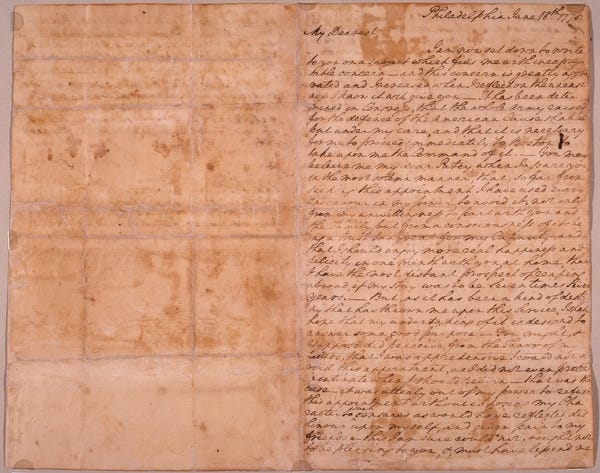 Philadelphia June 18th 1775.
My Dearest,
I am now set down to write
to you on a subject which fills me with inexpres-
sible concern — and this concern is greatly aggra-
vated and Increased when I reflect on the uneasi-
ness I know it will give you — It has been deter-
mined in Congress, that the whole Army raised
for the defence of the American Cause shall be
put under my care, and that it is necessary
for me to proceed immediately to Boston to
take upon me the command of it. — You may
believe me my dear Patcy, when I assure you
in the most solemn manner, that, so far from
seeking this appointment I have used every
endeavour in my power to avoid it, not only
from my unwillingness to part with you and
the Family, but from a consciousness of its be-
ing a trust too great for my Capacity and
that I should enjoy more real happiness and
felicity in one month with you, at home, than
I have the most distant prospect of reaping
abroad, if my stay was to be Seven times Seven
years. — But, as it has been a kind of desti-
ny that has thrown me upon this Service, I shall
hope that my undertaking of it, is designed to
answer some good purpose — You might, &
I suppose did perceive, from the Tenor of my
Letters, that I was apprehensive I could not a-
void this appointment, as I did not even pretend
to intimate when I should return — that was the
case — it was utterly out of my power to refuse
this appointment without exposing my Cha-
racter to such censures as would have reflected dis
honour upon myself, and given pain to my
friends — this I am sure could not, and ought not
to be pleasing to you, & must have lessend me